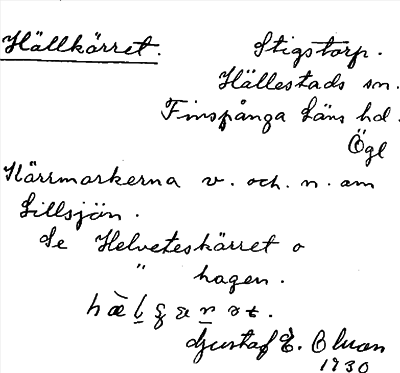 Hällkärret. Stigstorp.
Hällestads sn.
Finspånga läns hd.
Ögl
Kärrmarkerna v. och. n. om
Lillsjön.
Se Helveteskärret o
" hagen.
Gustaf E. Olsson
1930